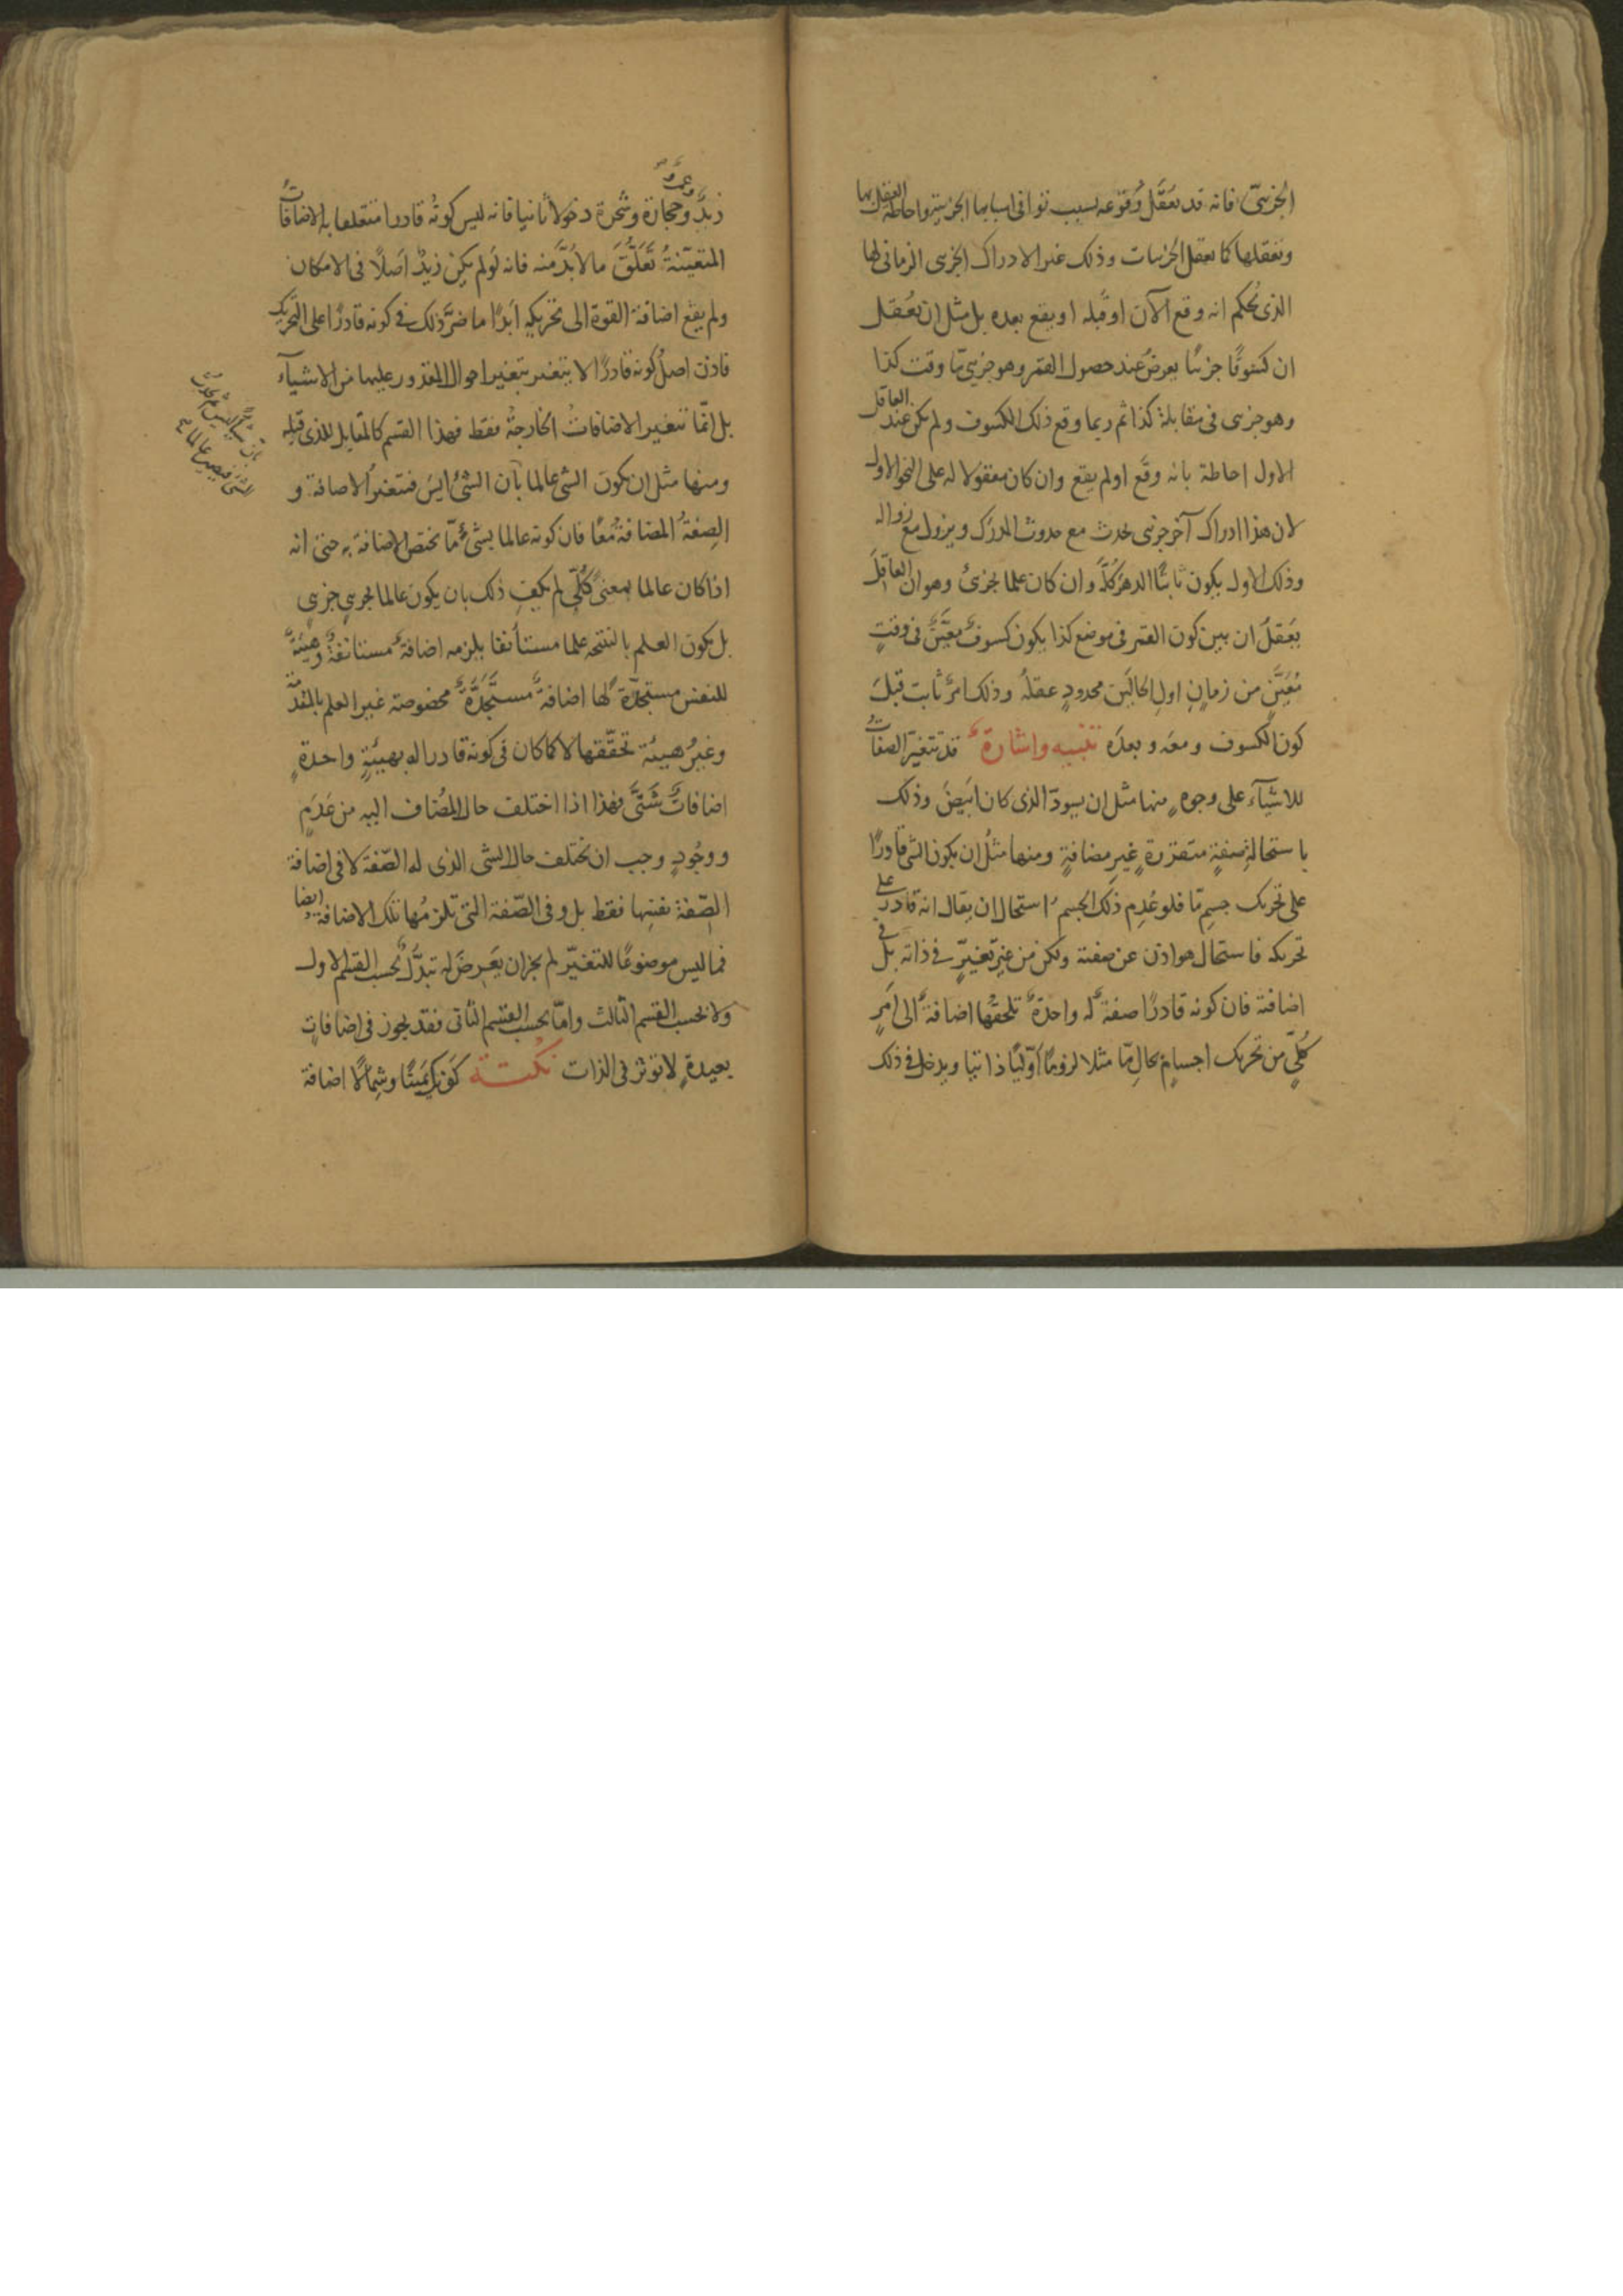 الجزئىّ فانه قد يعقل وقوعه بسبب توافى اسبابها الجزئية واحاطة العقل بها
وتعقلها كما تعقل الجزئيات وذلك غير الادراك الجزئى الزمانى لها
الذى يحكم انه وقع الآن او قبله او يقع بعده بل مثل ان تعقل
ان كسوفًا جزئيًا يعرض عند حصول القمر وهو جزئىّ مّا وقت كذا
وهو جزئى فى مقابلة كذا ثم ربما وقع ذلك الكسوف ولم يكن عند العاقل
الاول احاطة بانه وقع او لم يقع وان كان معقولا له على النحو الاول
لان هذا ادراك آخر جزئى يحدث مع حدوث المدرك ويزول مع زواله
وذلك الاول يكون ثابتًا الدهرَ كلّه وان كان علما بجزئ وهو ان العاقلَ
يَعقلُ ان بين كون القمر فى موضع كذا يكون كسوفٌ معيّنٌ فى وقتٍ
مُعَيَّنٍ من زمانِ اولِ الحالَين محدودٍ عقلهُ وذلك امرٌ ثابت قبلَ
كون الكسوف ومعَه وبعدَه تنبيه واشارة قد تتغيّر الصفاتُ
للاشيآء على وجوهٍ منها مثل ان يسودّ الذى كان ابيَضَ وذلك
باستحالةِ صفةٍ متقررةٍ غيرِ مضافةٍ ومنها مثلُ ان يكون الشئ قادرًا
على تحريك جسمٍ مّا فلو عُدِم ذلك الجسمُ استحال ان يقال انه قادرٌ على
تحريكه فاستحال هو اذن عن صفته ولكن من غيرِ تغيّرٍ فى ذاته بل فى
اضافته فان كونه قادرًا صفةٌ له واحدةٌ تلحقُها اضافةٌ الى اَمرٍ
كُلّىٍّ من تحريك اجسامٍ بحالٍ مّا مثلا لزومًا اوّليًّا ذاتيا ويدخل فى ذلك
زيدٌ وعمروٌ وحجارة وشجرة دخولًا ثانيا فانه ليس كونُه قادرا متعلقا به الاضافاتُ
المتعيّنةُ تَعَلُّقَ ما لا بُدَّ منه فانه لو لم يكن زيدٌ اصلًا فى الامكان
ولم يقع اضافة القوة الى تحريكه اَبدًا ما ضرَّ ذلك فى كونه قادرًا على التحريك
فاذن اصلُ كونه قادرًا لا يتغير بتغير احوال المقدور عليها من الاشيآء
بل انّما تتغير الاضافاتُ الخارجةُ فقط فهذا القسم كالمقابل للذى قبله
ومنها مثل ان يكونَ الشئ عالما بأن الشئَ ليس فتتغيرُ الاضافة و
الصِفةُ المضافةُ معًا فان كونه عالما بشئٍ مّا يختص الاضافة به حتى انه
اذا كان عالما بمعنىً كُلّىٍّ لم يكفِ ذلك بان يكون عالما بجزئىٍ جزئىٍ
بل يكون العلم بالنتيجه علما مستأنفا يلزمه اضافةٌ مستانفةٌ وهيئةٌ
للنفس مستجدّة لها اضافةٌ مستجدَّةٌ مخصوصة غير العلم بالمقدّمة
وغيرُ هيئة تحقّقها لا كما كان فى كونه قادرا له بهيئةٍ واحدةٍ
اضافاتٌ شَتّىَ فهذا اذا اختلف حال المُضاف اليه من عَدَمٍ
ووجُودٍ وجب ان يختلف حال الشى الذى له الصّفة لا فى اضافة
الصِّفة نفسِها فقط بل وفى الصّفة التى تلزمُها تلك الاضافة ايضا
فما ليس موضوعًا للتغيّر لم يجز ان يَعرِضَ له تبدُّلٌ بحسب القسم الاول
ولا بحسب القسم الثالث وامّا بحسب القسم الثانى فقد يجوز فى اضافاتٍ
بعيدةٍ لا توثر فى الذات نكتة كونك يمينًا وشِمالًا اضافة